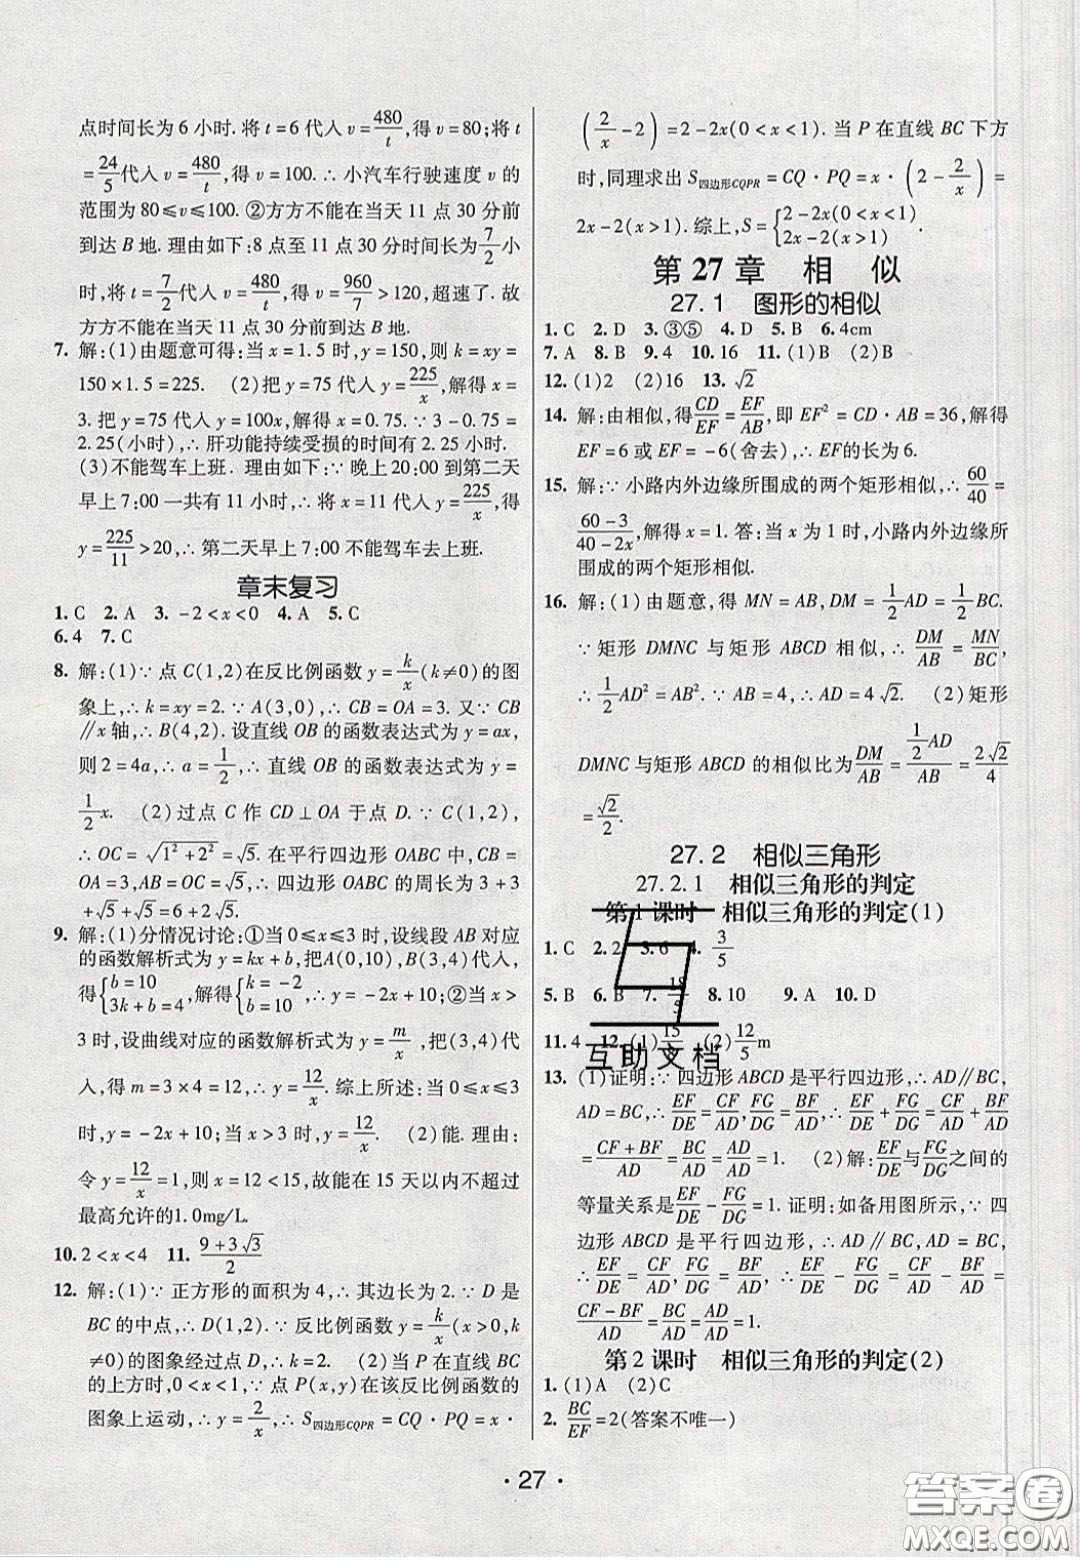 点时间长为6小时.将t=6代人v=480/t,得v=80;将t
=24/5代人v=480/t,得v=100.∴小汽车行驶速度v的
范围为80≤v≤100.②方方不能在当天11点30分前
到达B地.理由如下:8点至11点30分时间长为7/2小
时,将t=7/2代人v=480/t,得v=960/7>120,超速了.故
方方不能在当天11点30分前到达B地.
7. 解:(1)由题意可得:当x=1.5时,y=150,则k=xy=
150×1.5=225. (2)把y=75代人y=225/x,解得x=
3.把y=75代人y=100x,解得x=0.75.∵3-0.75=
2.25(小时),∴肝功能持续受损的时间有2.25小时.
(3)不能驾车上班.理由如下:∵晚上20:00到第二天
早上7:00一共有11小时,∴将x=11代人y=225/x,得
y=225/11>20,∴第二天早上7:00不能驾车去上班.
章末复习
1. C 2. A 3. -2<x<0 4. A 5. C
6. 4 7. C
8. 解:(1)∵点C(1,2)在反比例函数y=k/x(k≠0)的图
象上,∴k=xy=2.∵A(3,0),∴CB=OA=3.又∵CB
∥x轴,∴B(4,2).设直线OB的函数表达式为y=ax,
则2=4a,∴a=1/2,∴直线OB的函数表达式为y=
1/2x. (2)过点C作CD⊥OA于点D.∵C(1,2),
∴OC=√(1²+2²)=√5.在平行四边形OABC中,CB=
OA=3,AB=OC=√5,∴四边形OABC的周长为3+3
+√5+√5=6+2√5.
9. 解:(1)分情况讨论:①当0≤x≤3时,设线段AB对应
的函数解析式为y=kx+b,把A(0,10),B(3,4)代人,
得{b=10 3k+b=4,解得{k=-2 b=10,∴y=-2x+10;②当x>
3时,设曲线对应的函数解析式为y=m/x,把(3,4)代
人,得m=3×4=12,∴y=12/x.综上所述:当0≤x≤3
时,y=-2x+10;当x>3时,y=12/x. (2)能.理由:
令y=12/x=1,则x=12<15,故能在15天以内不超过
最高允许的1.0mg/L.
10. 2<x<4 11. (9+3√3)/2
12. 解:(1)∵正方形的面积为4,∴其边长为2.∵D是
BC的中点,∴D(1,2).∵反比例函数y=k/x(x>0,k
≠0)的图象经过点D,∴k=2. (2)当P在直线BC
的上方时,0<x<1,∵点P(x,y)在该反比例函数的
图象上运动,∴y=2/x,∴S四边形CQPR=CQ·PQ=x·
(2/x-2)=2-2x(0<x<1).当P在直线BC下方
时,同理求出S四边形CQPR=CQ·PQ=x·(2-2/x)=
2x-2(x>1).综上,S={2-2x(0<x<1) 2x-2(x>1).
第27章 相 似
27.1 图形的相似
1. C 2. D 3. ③⑤ 4. D 5. B 6. 4cm
7. A 8. B 9. 4 10. 16 11. (1)B (2)B
12. (1)2 (2)16 13. √2
14. 解:由相似,得CD/EF=EF/AB,即EF²=CD·AB=36,解得
EF=6或EF=-6(舍去),∴EF的长为6.
15. 解:∵小路内外边缘所围成的两个矩形相似,∴60/40=
(60-3)/(40-2x),解得x=1.答:当x为1时,小路内外边缘所
围成的两个矩形相似.
16. 解:(1)由题意,得MN=AB,DM=1/2AD=1/2BC.
∵矩形DMNC与矩形ABCD相似,∴DM/AB=MN/BC,
∴1/2AD²=AB².∵AB=4,∴AD=4√2. (2)矩形
DMNC与矩形ABCD的相似比为DM/AB=(1/2AD)/AB=2√2/4
=√2/2.
27.2 相似三角形
27.2.1 相似三角形的判定
第1课时 相似三角形的判定(1)
1. C 2. 2 3. 6 4. 3/5
5. B 6. B 7. 18/5 8. 10 9. A 10. D
11. 4 12. (1)15 (2)12/5m
互助文档
13. (1)证明:∵四边形ABCD是平行四边形,∴AD∥BC,
AD=BC,∴EF/DE=CF/AD,FG/DG=BF/AD,∴EF/DE+FG/DG=CF/AD+BF/AD
=(CF+BF)/AD=BC/AD=AD/AD=1. (2)解:EF/DE与FG/DG之间的
等量关系是EF/DE-FG/DG=1.证明:如备用图所示,∵四
边形ABCD是平行四边形,∴AD∥BC,AD=BC,
∴EF/DE=CF/AD,FG/DG=BF/AD,∴EF/DE-FG/DG=CF/AD-BF/AD=
(CF-BF)/AD=BC/AD=AD/AD=1.
第2课时 相似三角形的判定(2)
1. (1)A (2)C
2. BC/EF=2(答案不唯一)
·27·
答案圈
MXQE.COM